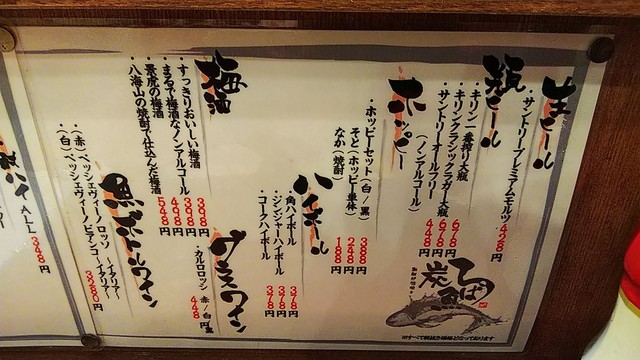 生ビール
・サントリープレミアムモルツ 428円
瓶ビール
・キリン一番搾り大瓶 678円
・キリンクラシックラガー大瓶 678円
・サントリーオールフリー(ノンアルコール) 448円
ホッピー
・ホッピーセット(白/黒) 388円
そと(ホッピー単体) 248円
なか(焼酎) 188円
ハイボール
・角ハイボール 378円
・ジンジャーハイボール 378円
・コークハイボール 378円
梅酒
・すっきりおいしい梅酒 398円
・まるで梅酒なノンアルコール 498円
・景虎の梅酒 498円
・八海山の焼酎で仕込んだ梅酒 548円
グラスワイン
・カルロロッシ 赤/白 448円
黒ボトルワイン
・(赤)ペッシェヴィーノ ロッソ 〜イタリア〜
・(白)ペッシェヴィーノ ビアンコ 〜イタリア〜
3280円
ALL 348円
てっぱつ
炭
※すべて税抜き価格となっております